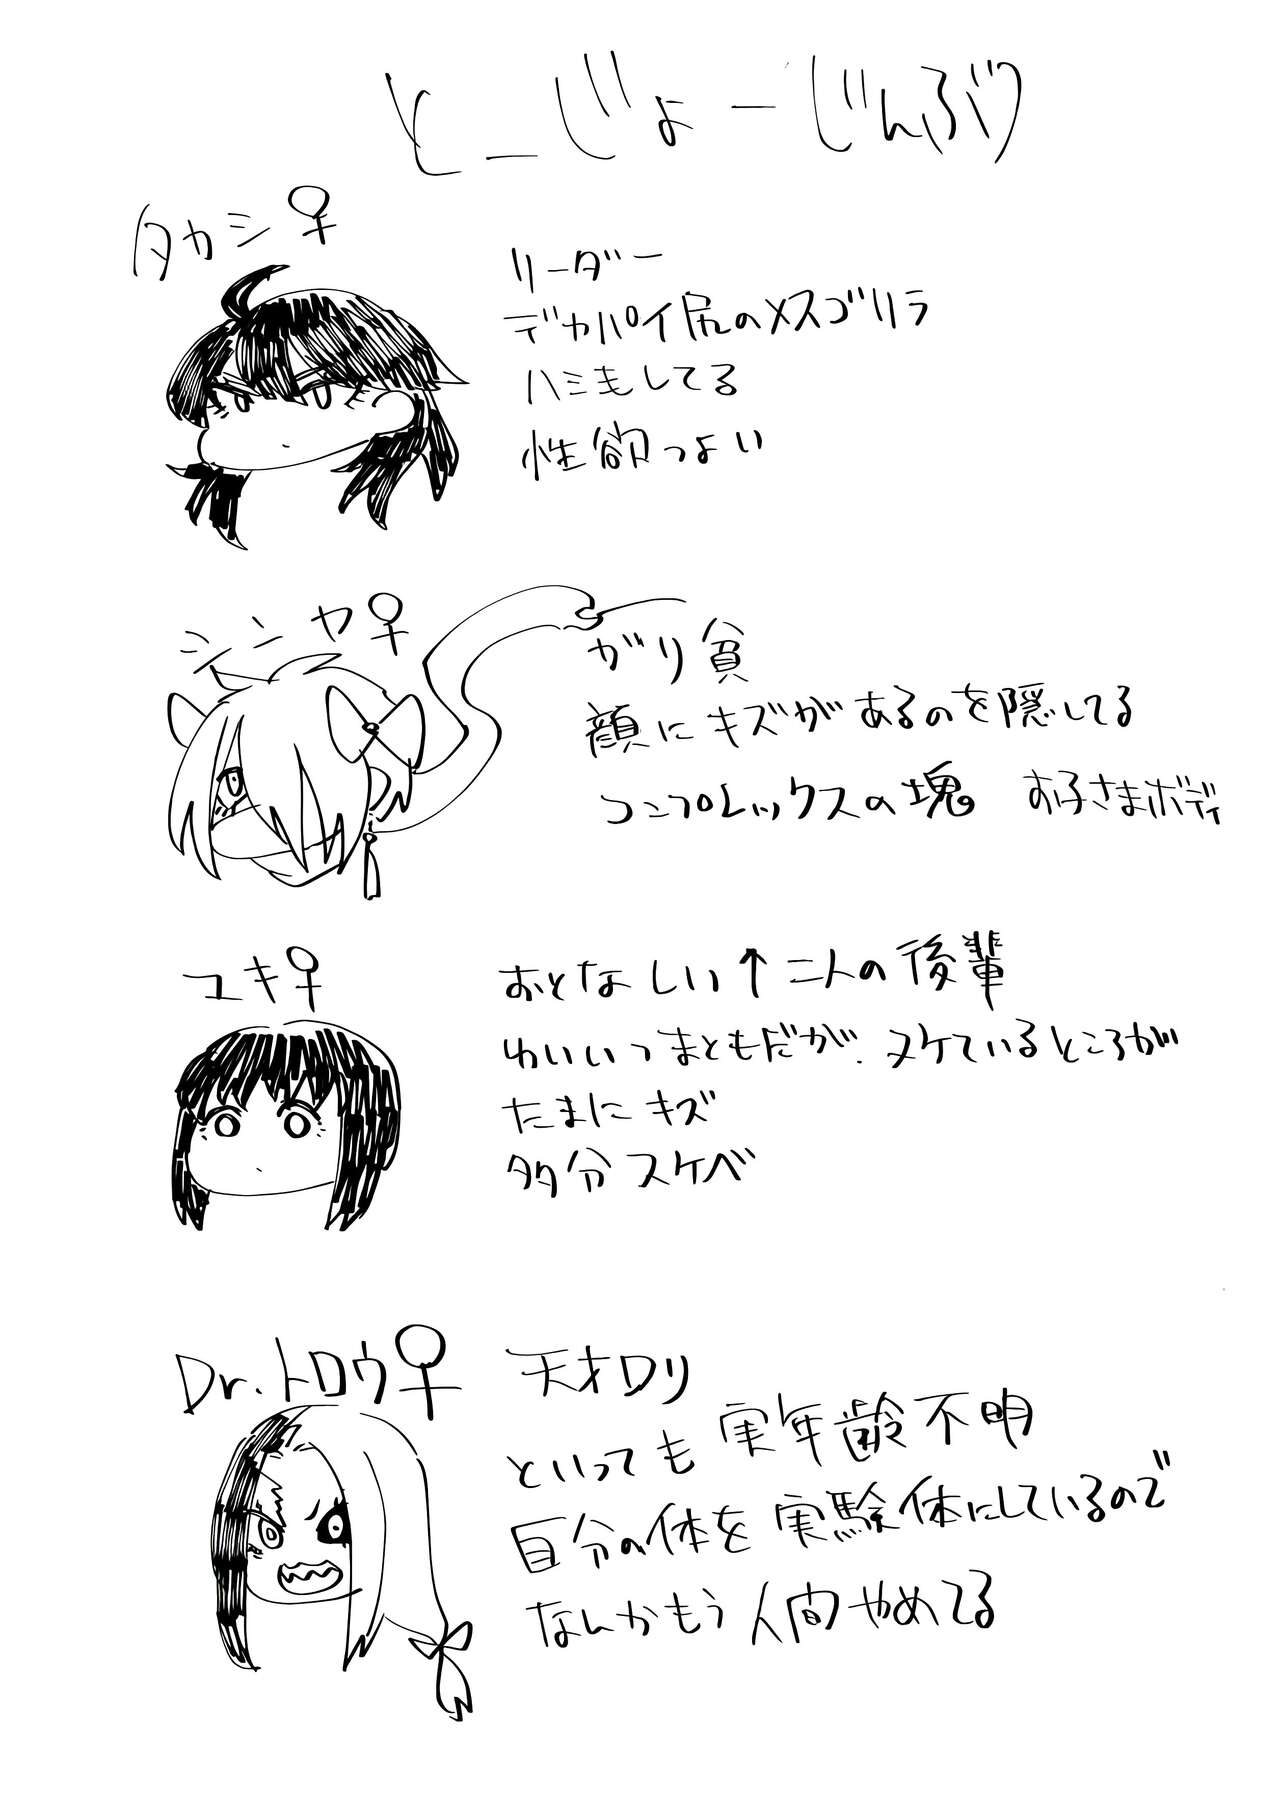 とーじょーじんぶつ
タカシ♀
リーダー
デカパイ尻のメスゴリラ
ハミ毛してる
性欲つよい
シンヤ♀
がり貧
顔にキズがあるのを隠してる
コンプレックスの塊。 お子さまボディ
ユキ♀
おとなしい↑二人の後輩
わいいつまともだが、ヌケているところが
たまにキズ
多分スケベ
Dr.トロウ♀
天才ロリ
といっても実年齢不明
自分の体を実験体にしているので
なんかもう人間やめてる